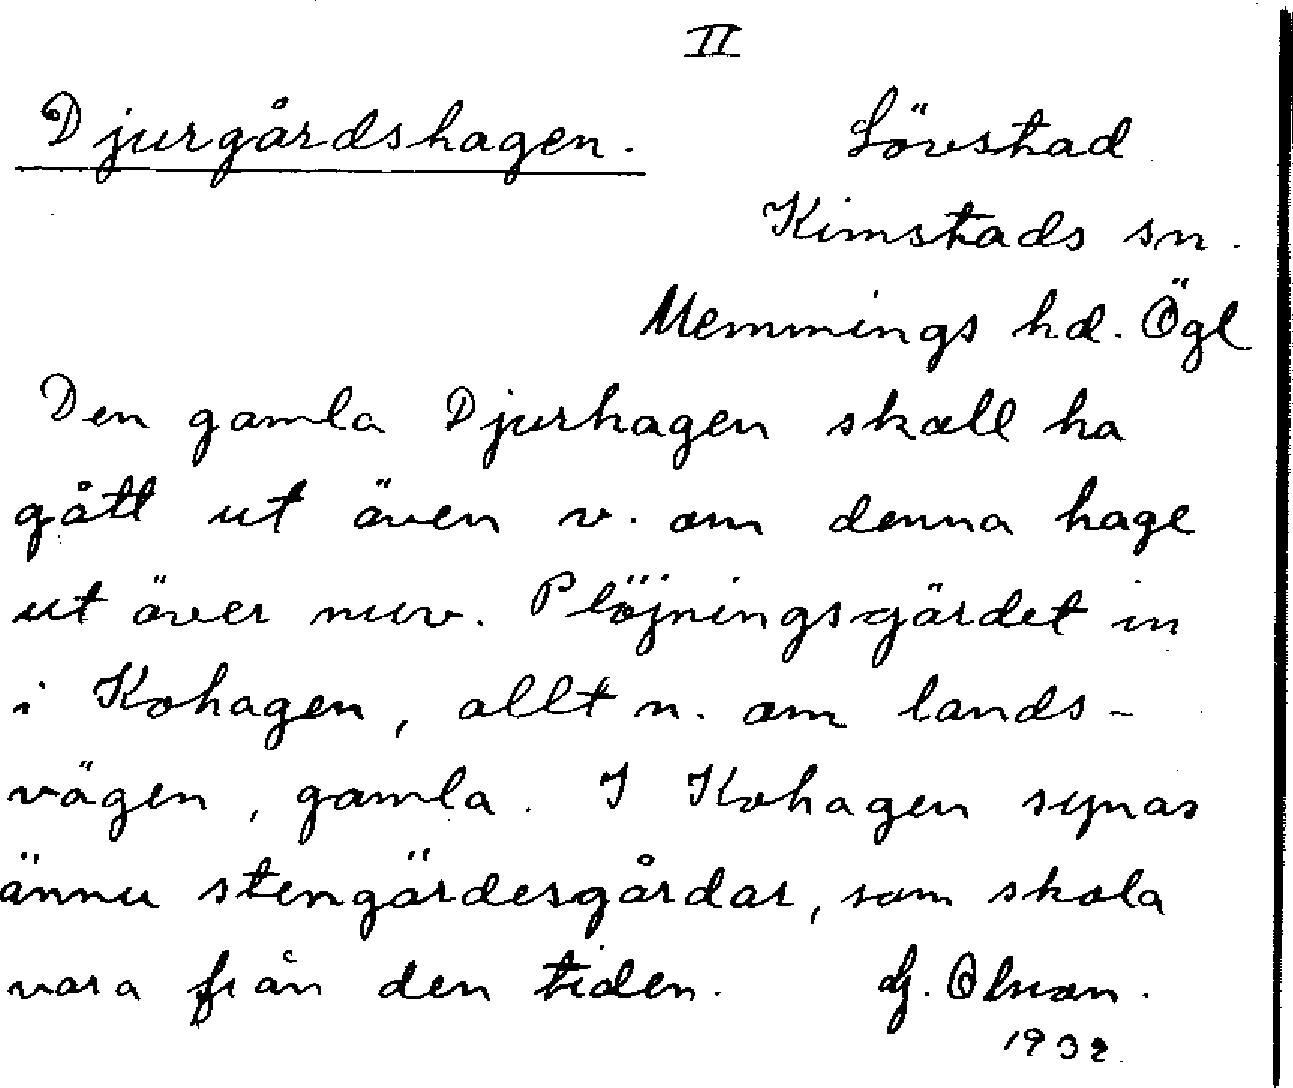 II
Djurgårdshagen. Lövstad
Kimstads sn.
Memmings hd. Ögl
Den gamla Djurhagen skall ha
gått ut även v. om denna hage
ut över nuv. Plöjningsgärdet in
i Kohagen, allt n. om lands-
vägen, gamla. I Kohagen synas
ännu stengärdesgårdar, som skola
vara från den tiden. G. Olson.
1932